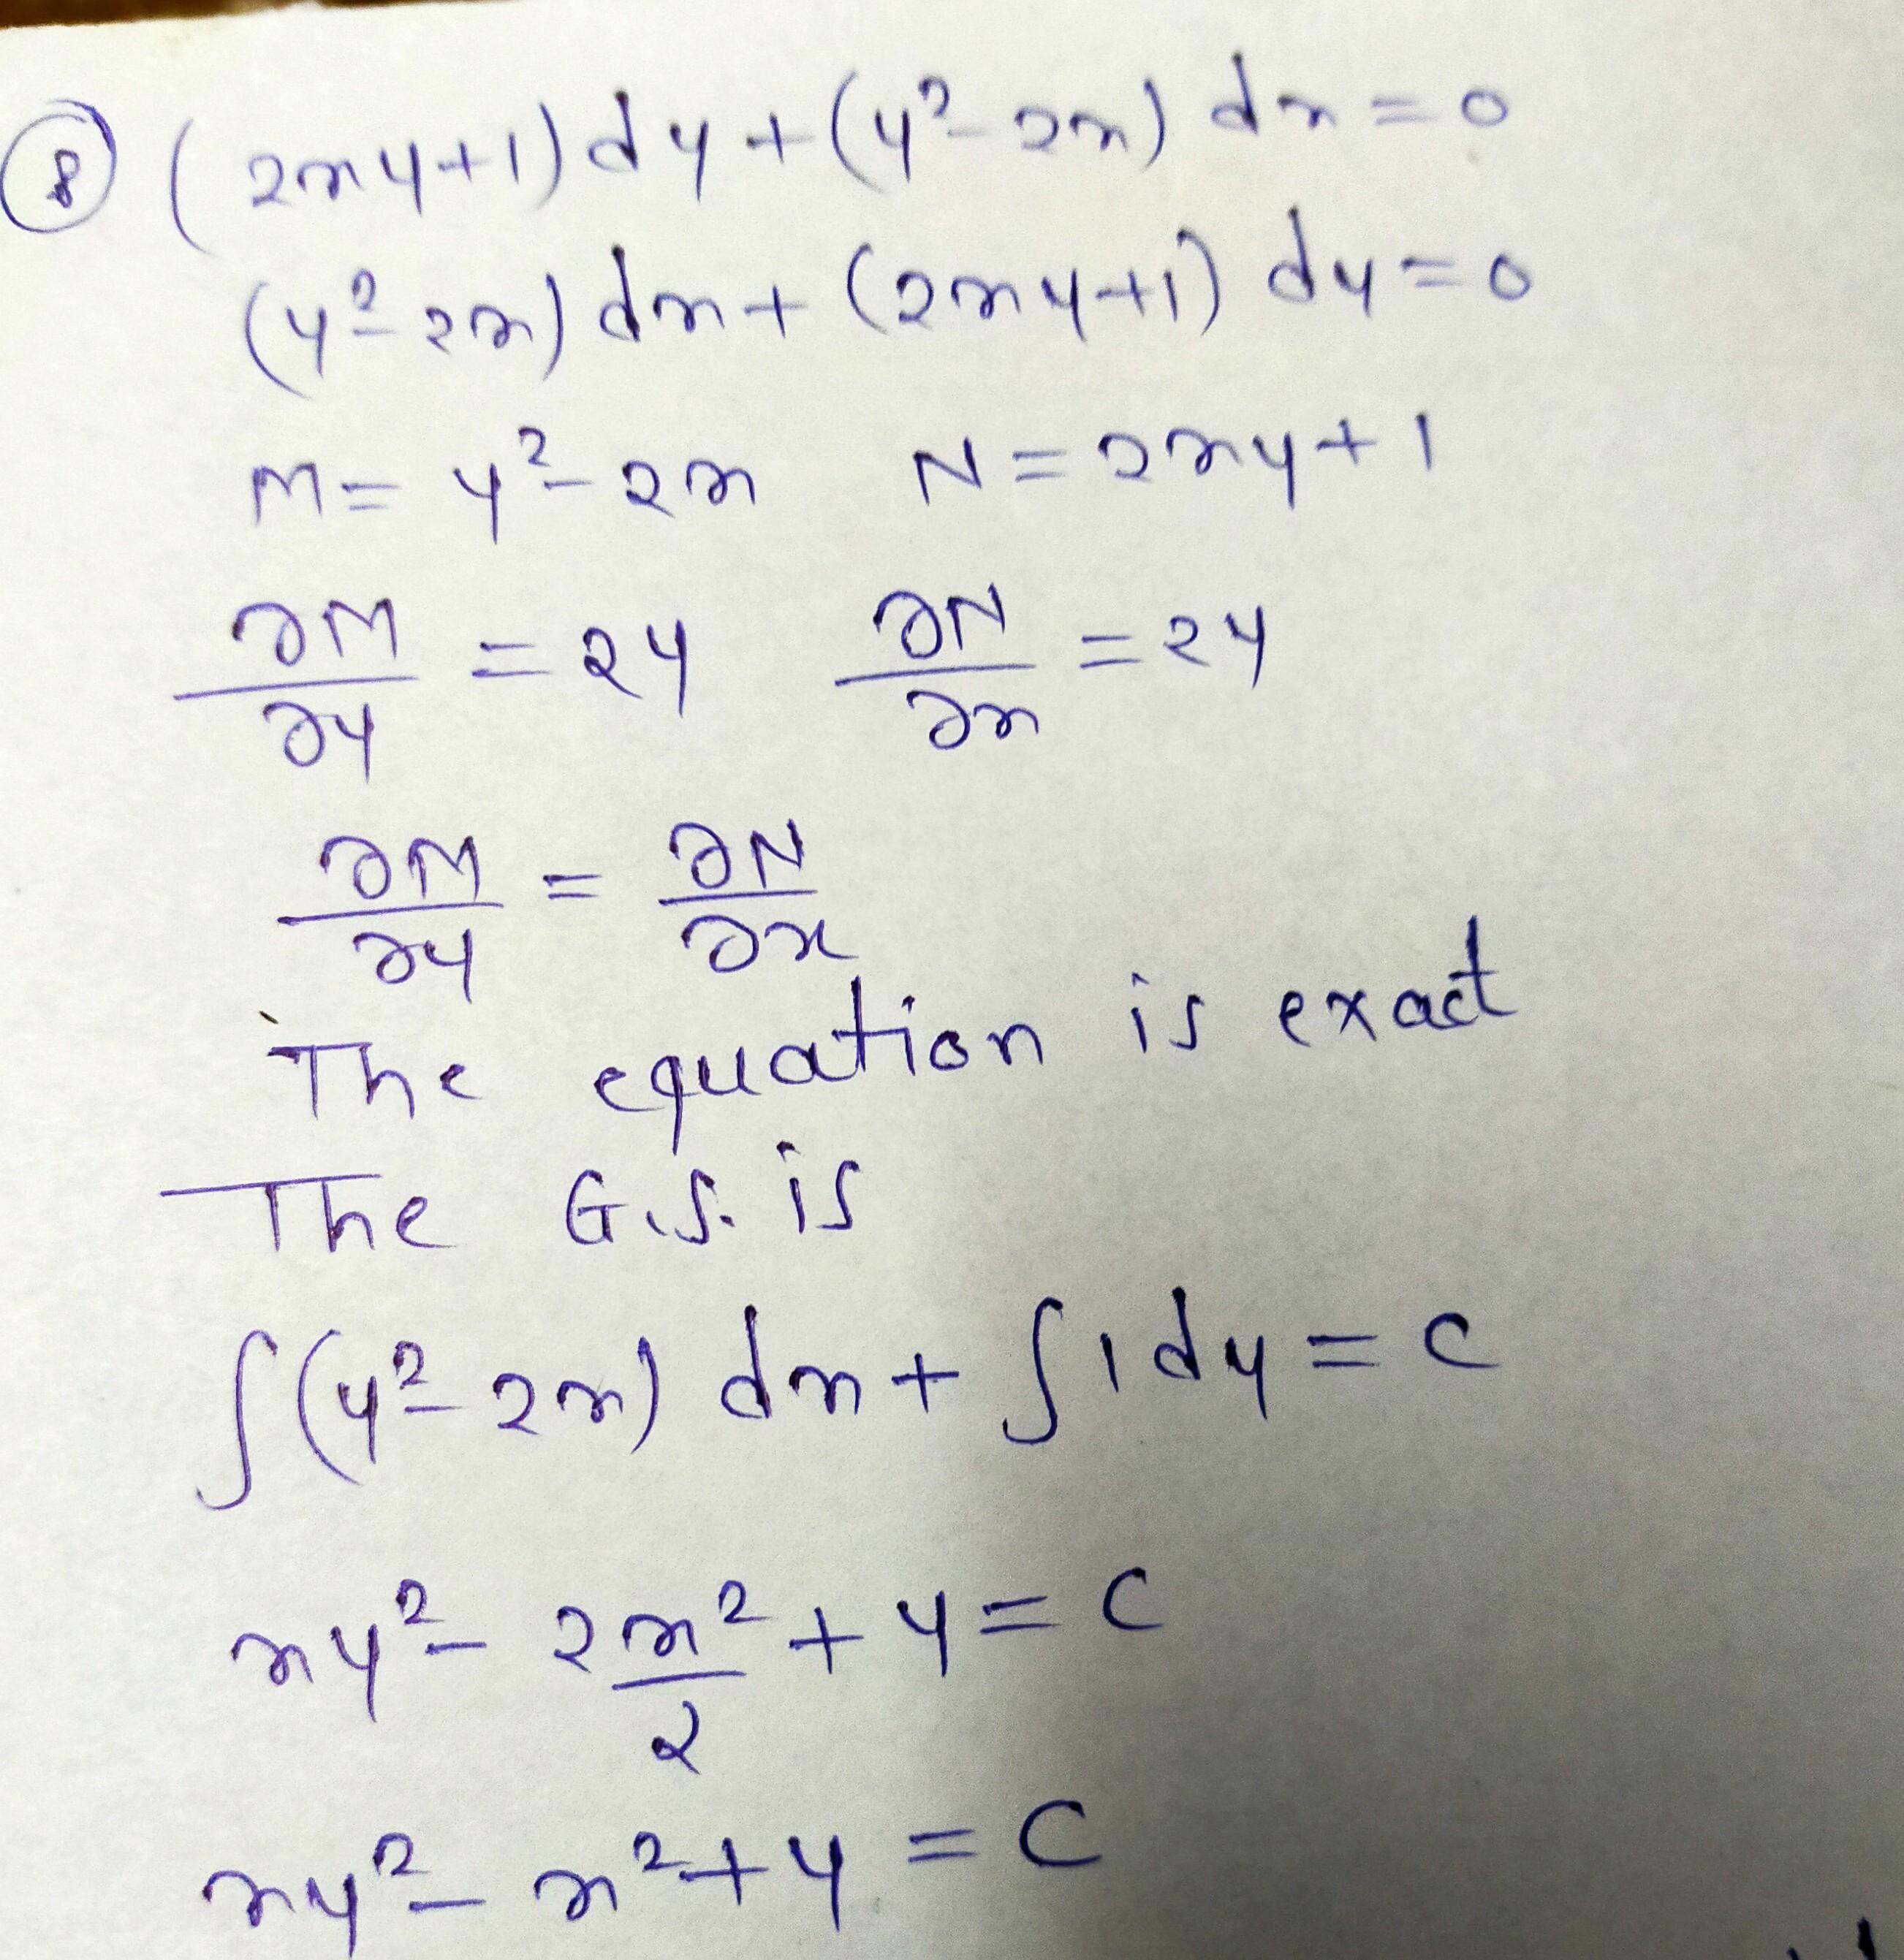 ⑧ (2xy+1)dy+(y²-2x) dx=0
(y²-2x) dx+(2xy+1) dy=0
M= y²-2x N=2xy+1
∂M/∂y =2y ∂N/∂x =2y
∂M/∂y = ∂N/∂x
The equation is exact
The G.S. is
∫(y²-2x) dx+ ∫1dy= c
xy²- 2x²/2 +y= c
xy²-x²+y = C